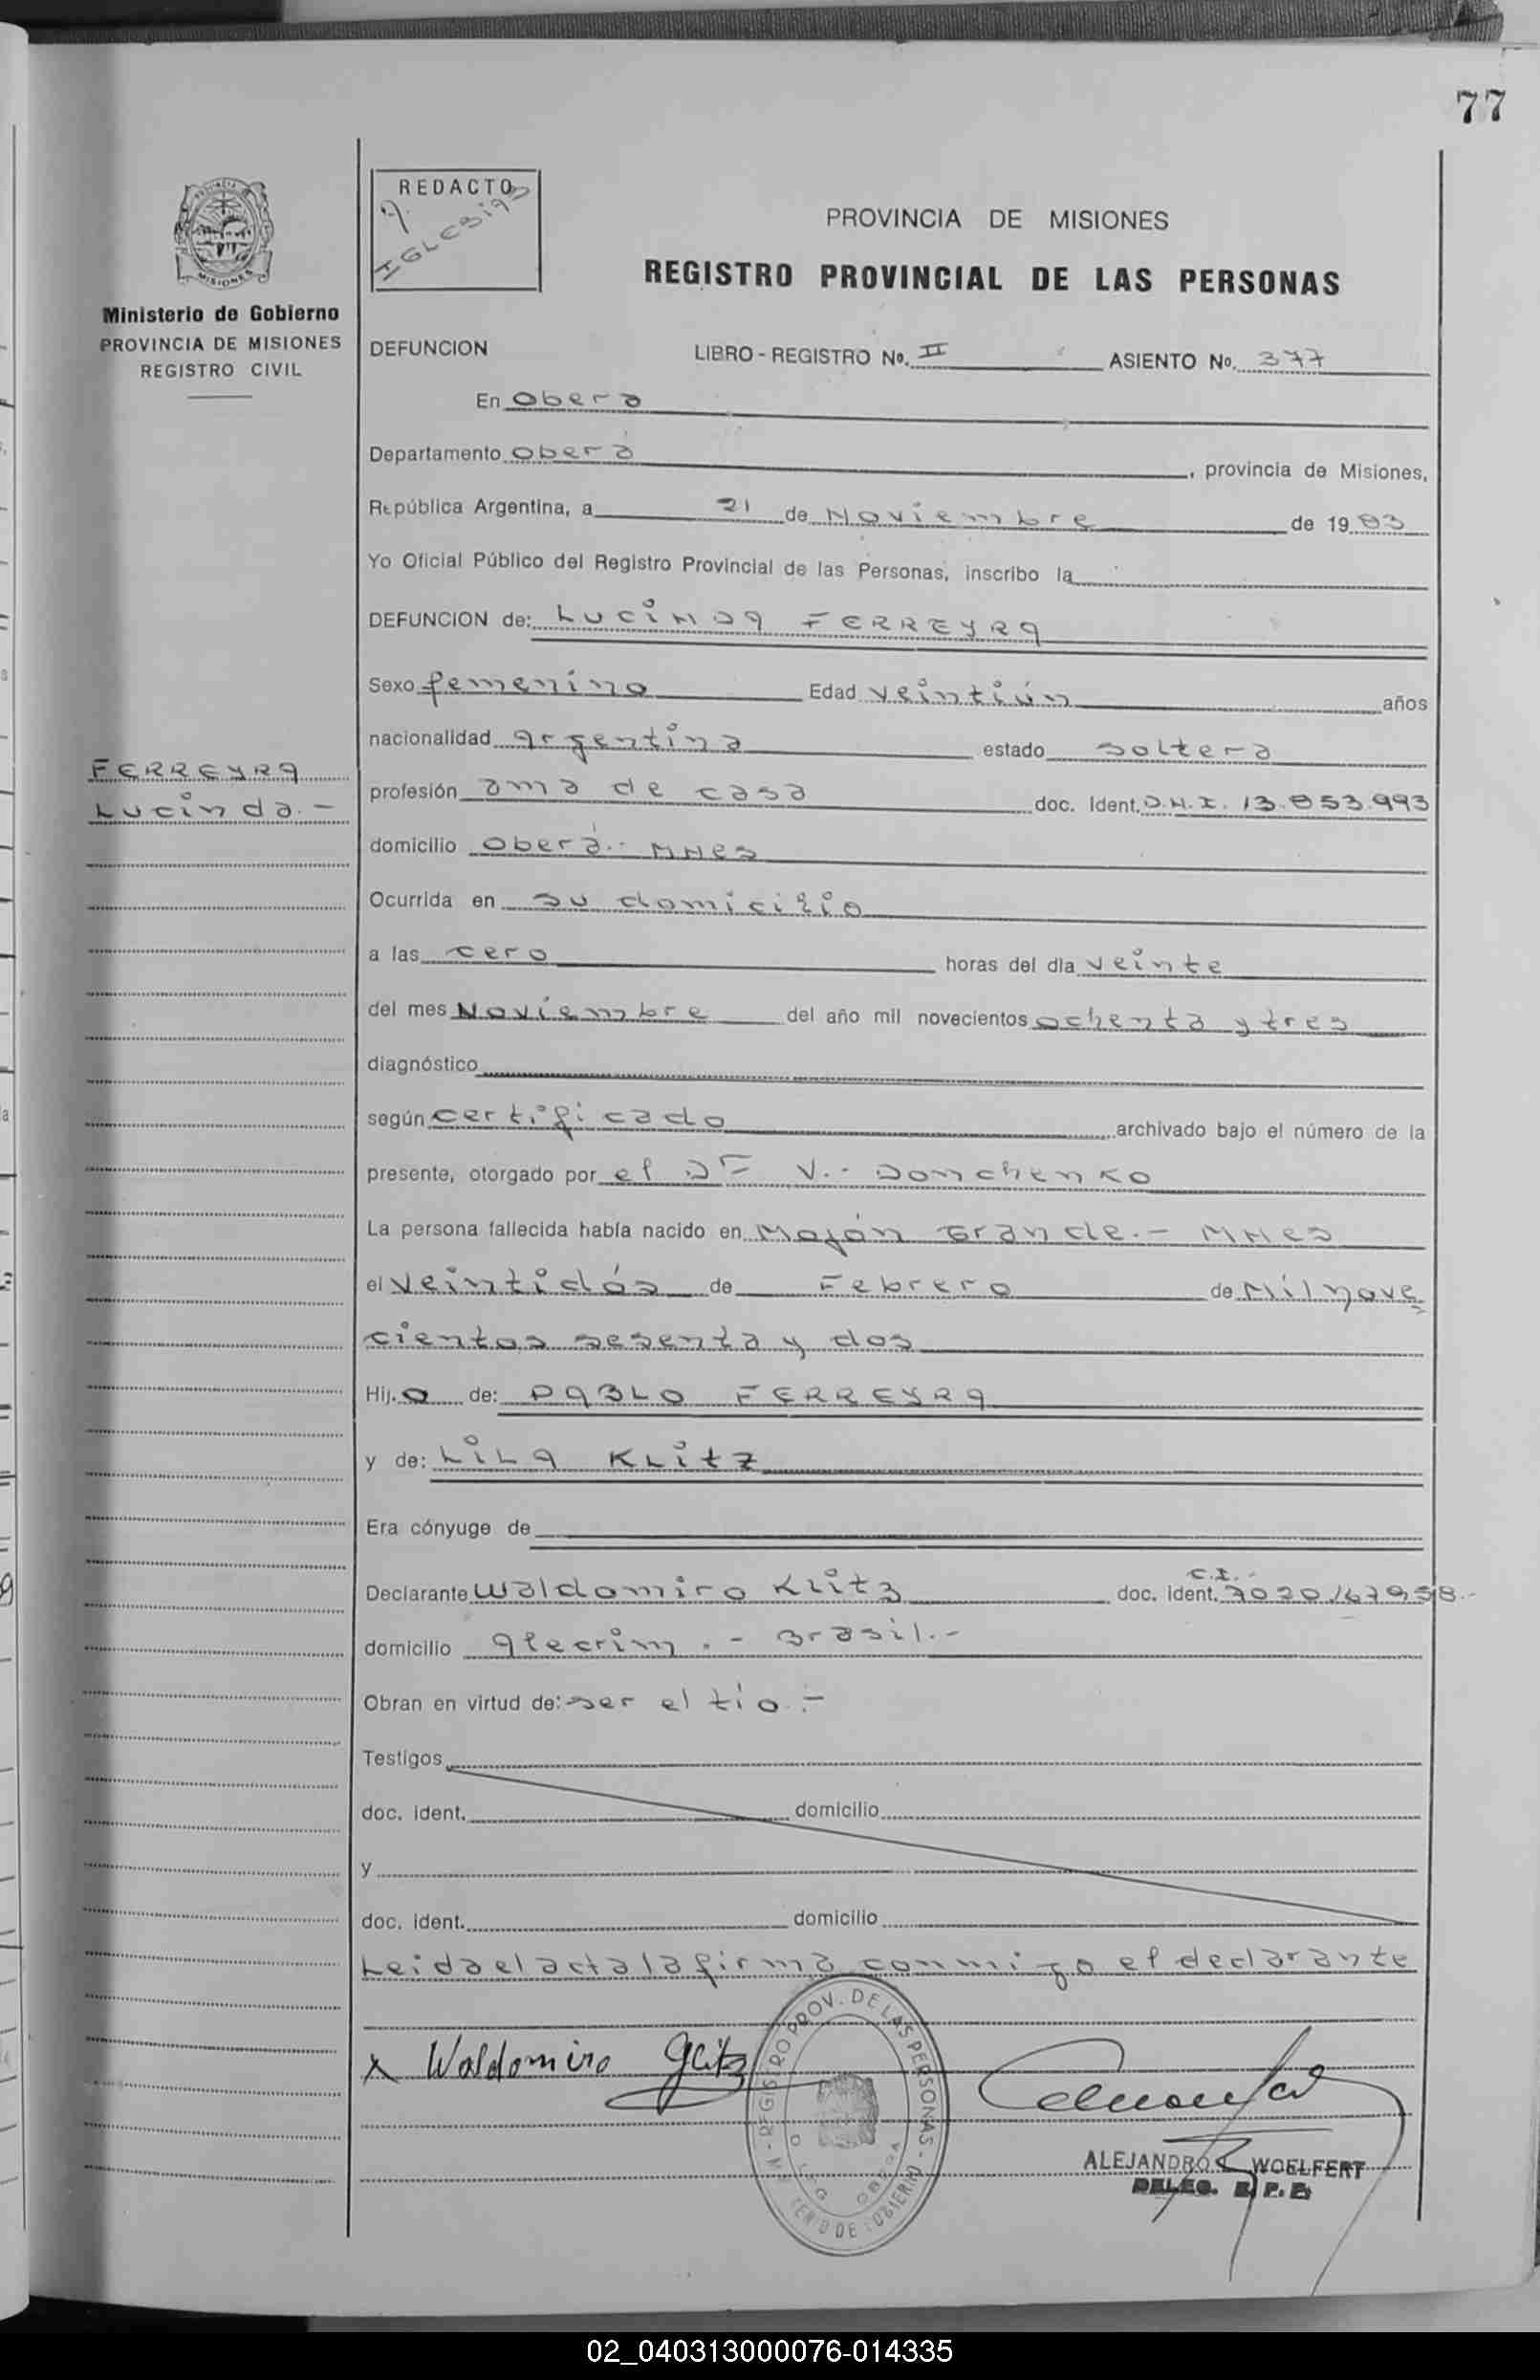 77
REDACTO
IGLESIAS
PROVINCIA DE MISIONES
REGISTRO PROVINCIAL DE LAS PERSONAS
MISIONES
Ministerio de Gobierno
PROVINCIA DE MISIONES
REGISTRO CIVIL
DEFUNCION LIBRO - REGISTRO No. II ASIENTO No. 377
En Oberá
Departamento Oberá, provincia de Misiones,
República Argentina, a 21 de Noviembre de 1983
Yo Oficial Público del Registro Provincial de las Personas, inscribo la
DEFUNCION de: LUCINDA FERREYRA
Sexo femenino Edad veintiún años
nacionalidad argentina estado soltera
FERREYRA
Lucinda.-
profesión ama de casa doc. Ident. D.N.I. 13.853.993
domicilio Oberá.- MNes
Ocurrida en su domicilio
a las cero horas del día veinte
del mes Noviembre del año mil novecientos ochenta y tres
diagnóstico
según certificado archivado bajo el número de la
presente, otorgado por el Dr V.- Donchenko
La persona fallecida había nacido en Mojón Grande.- MNes
el veintidós de Febrero de Mil nove
cientos sesenta y dos
Hija de: PABLO FERREYRA
y de: LILA KLITZ
Era cónyuge de
Declarante Waldomiro Klitz doc. ident. C.I. 7020167958.-
domicilio Alecrim.- Brasil.-
Obran en virtud de: ser el tío.-
Testigos
doc. ident. domicilio
y
doc. ident. domicilio
Leida el acta la firma conmigo el declarante
x Waldomiro Glitz
REGISTRO PROV. DE LAS PERSONAS
ALEJANDRO WOELFERT
DELEG. R. P. P.
02_040313000076-014335